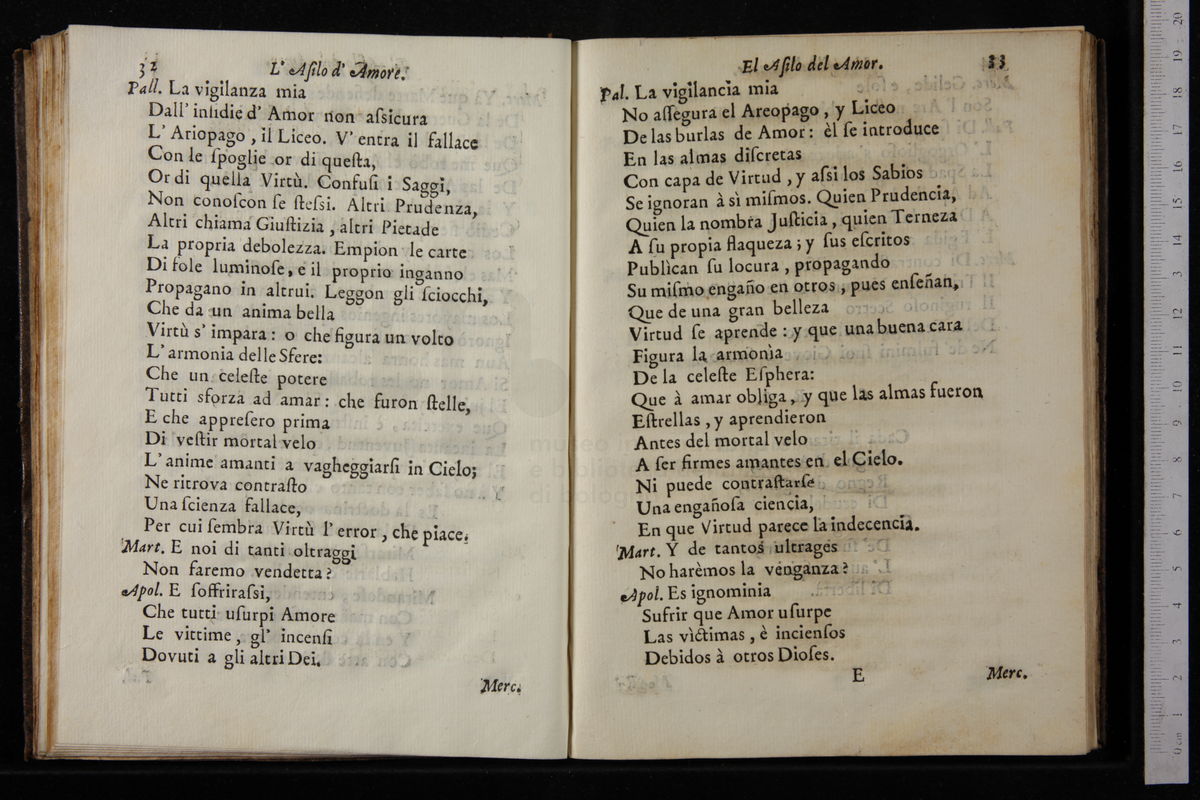 32
L' Aſilo d' Amore.
Pall. La vigilanza mia
Dall' inſidie d' Amor non aſsicura
L' Ariopago, il Liceo. V' entra il fallace
Con le ſpoglie or di queſta,
Or di quella Virtù. Confuſi i Saggi,
Non conoſcon ſe ſteſsi. Altri Prudenza,
Altri chiama Giuſtizia, altri Pietade
La propria debolezza. Empion le carte
Di fole luminoſe, e il proprio inganno
Propagano in altrui. Leggon gli ſciocchi,
Che da un anima bella
Virtù s' impara: o che figura un volto
L' armonia delle Sfere:
Che un celeſte potere
Tutti sforza ad amar: che furon ſtelle,
E che appreſero prima
Di veſtir mortal velo
L' anime amanti a vagheggiarſi in Cielo;
Ne ritrova contraſto
Una ſcienza fallace,
Per cui ſembra Virtù l' error, che piace.
Mart. E noi di tanti oltraggi
Non faremo vendetta?
Apol. E ſoffriraſsi,
Che tutti uſurpi Amore
Le vittime, gl' incenſi
Dovuti a gli altri Dei.
Merc.
El Aſilo del Amor.
33
Pal. La vigilancia mia
No aſſegura el Areopago, y Liceo
De las burlas de Amor: èl ſe introduce
En las almas diſcretas
Con capa de Virtud, y aſsi los Sabios
Se ignoran à sì miſmos. Quien Prudencia,
Quien la nombra Juſticia, quien Terneza
A ſu propia flaqueza; y ſus eſcritos
Publìcan ſu locura, propagando
Su miſmo engaño en otros, pues enſeñan,
Que de una gran belleza
Virtud ſe aprende: y que una buena cara
Figura la armonìa
De la celeſte Eſphera:
Que à amar obliga, y que las almas fueron
Eſtrellas, y aprendieron
Antes del mortal velo
A ſer firmes amantes en el Cielo.
Ni puede contraſtarſe
Una engañoſa ciencia,
En que Virtud parece la indecencia.
Mart. Y de tantos ultrages
No harèmos la venganza?
Apol. Es ignominia
Sufrir que Amor uſurpe
Las vìctimas, è incienſos
Debidos à otros Dioſes.
E
Merc.